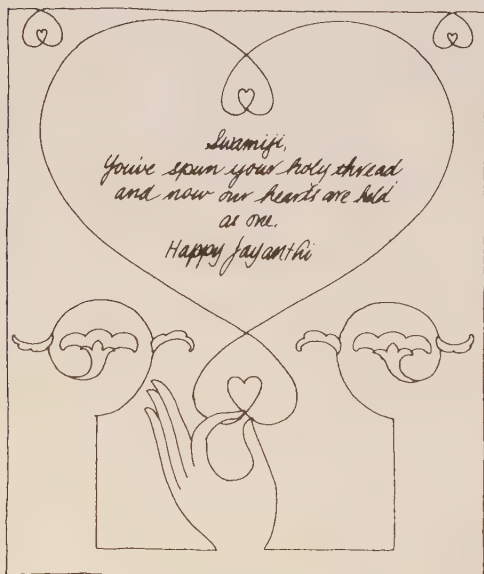 Swamiji,
You've spun your holy thread
and now our hearts are held
as one.
Happy Jayanthi